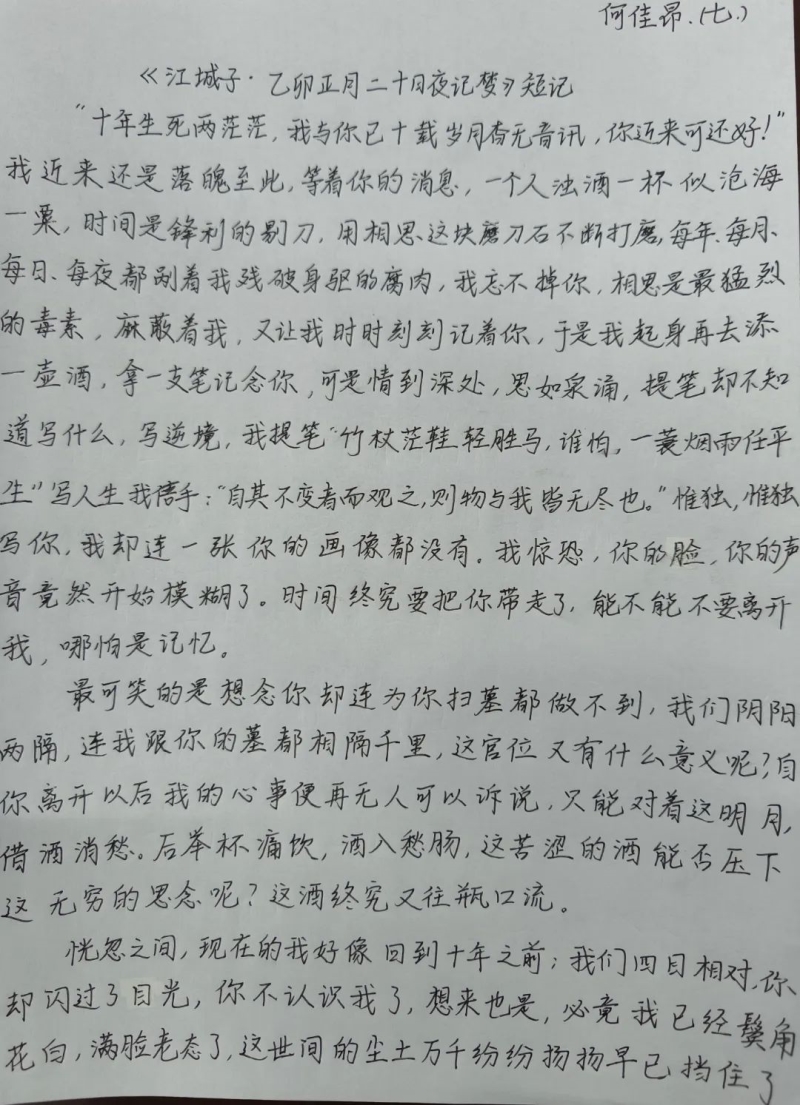 何佳昂.(七.)
《江城子·乙卯正月二十日夜记梦》短记
“十年生死两茫茫，我与你已十载岁月杳无音讯，你近来可还好！”
我近来还是落魄至此，等着你的消息，一个人浊酒一杯似沧海
一粟，时间是锋利的剔刀，用相思这块磨刀石不断打磨，每年、每月、
每日、每夜都剐着我残破身驱的腐肉，我忘不掉你，相思是最猛烈
的毒素，麻散着我，又让我时时刻刻记着你，于是我起身再去添
一壶酒，拿一支笔记念你，可是情到深处，思如泉涌，提笔却不知
道写什么，写逆境，我提笔“竹杖茫鞋轻胜马，谁怕，一蓑烟雨任平
生”写人生我信手：“自其不变者而观之，则物与我皆无尽也。”惟独，惟独
写你，我却连一张你的画像都没有。我惊恐，你的脸，你的声
音竟然开始模糊了。时间终究要把你带走了，能不能不要离开
我，哪怕是记忆。
最可笑的是想念你却连为你扫墓都做不到，我们阴阳
两隔，连我跟你的墓都相隔千里，这官位又有什么意义呢？自
你离开以后我的心事便再无人可以诉说，只能对着这明月，
借酒消愁。后举杯痛饮，酒入愁肠，这苦涩的酒能否压下
这无穷的思念呢？这酒终究又往瓶口流。
恍忽之间，现在的我好像回到十年之前；我们四目相对，你
却闪过了目光，你不认识我了，想来也是，必竟我已经鬓角
花白，满脸老态了，这世间的尘土万千纷纷扬扬早已挡住了